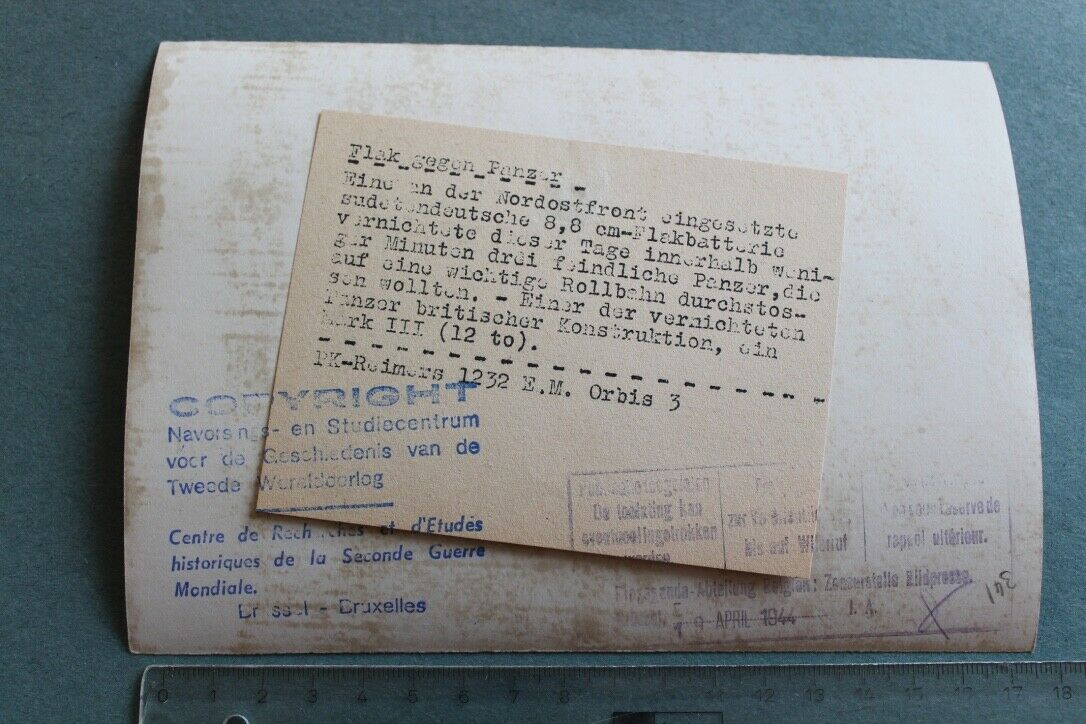 Flak gegen Panzer -
Eine an der Nordostfront eingesetzte
sudetendeutsche 8,8 cm-Flakbatterie
vernichtete dieser Tage innerhalb weni-
ger Minuten drei feindliche Panzer,die
auf eine wichtige Rollbahn durchstos-
sen wollten. - Einer der vernichteten
Panzer britischer Konstruktion, ein
Mark III (12 to).
PK-Reimers 1232 E.M. Orbis 3
COPYRIGHT
Navorsings- en Studiecentrum
voor de Geschiedenis van de
Tweede Wereldoorlog
Centre de Recherches et d'Etudes
historiques de la Seconde Guerre
Mondiale.
Brussel - Bruxelles
De toelating kan
zur
réserve de
bis auf Widerruf
rappel ultérieur.
Propaganda-Abteilung Belgien: Zensurstelle Bildpresse.
APRIL 1944 I. A.
341
0 1 2 3 4 5 6 7 8 12 13 14 15 16 17 18